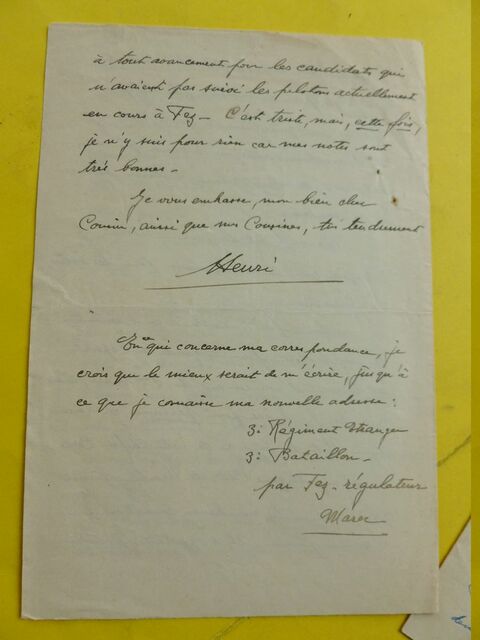 à tout avancement pour les candidats qui
n'avaient pas suivi les pelotons actuellement
en cours à Fez – C'est triste, mais, cette fois,
je n'y suis pour rien car mes notes sont
très bonnes –
Je vous embrasse, mon bien cher
Cousin, ainsi que mes Cousines, très tendrement
Henri
En ce qui concerne ma correspondance, je
crois que le mieux serait de m'écrire, jusqu'à
ce que je connaisse ma nouvelle adresse :
3e Régiment Etranger
3e Bataillon –
par Fez – régulateur
Maroc